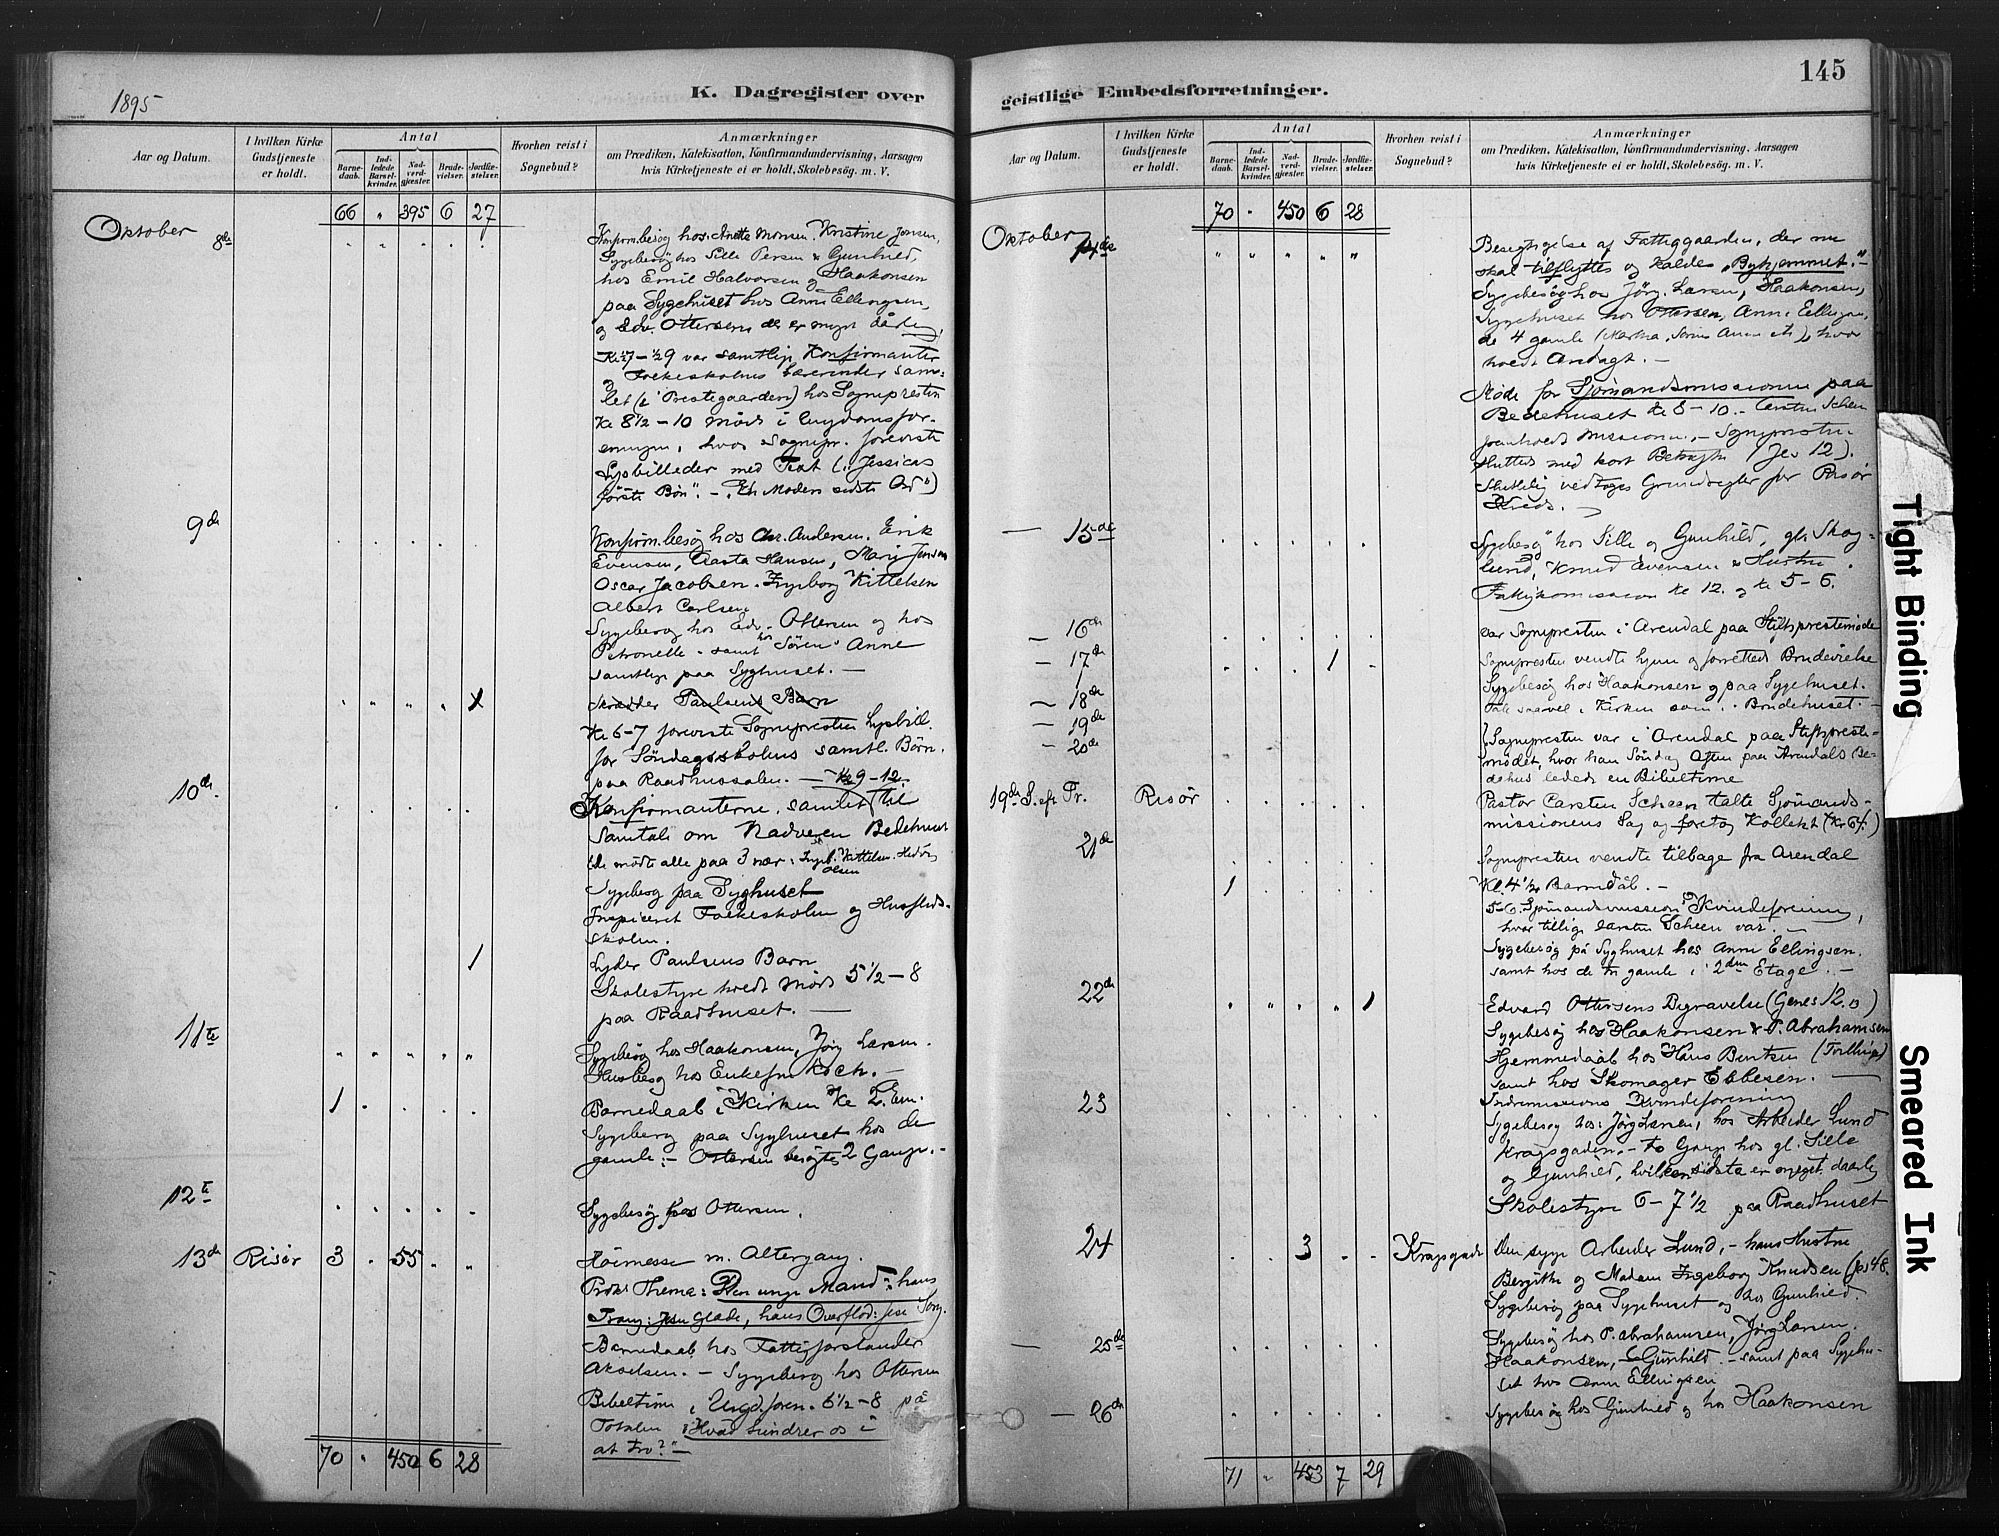 1895
K. Dagregister over
Aar og Datum.
I hvilken Kirke Gudstjeneste er holdt.
Antal
Barnedaab.
Indledede Barselkvinder.
Nadverdgjester.
Brudevielser.
Jordfæstelser.
Hvorhen reist i Sognebud?
Anmærkninger
om Prædiken, Katekisation, Konfirmandundervisning, Aarsagen
hvis Kirketjeneste ei er holdt, Skolebesøg. m. V.
66 " 395 6 27
Oktober 8de
Konfirm.besøg hos Anette Monsen. Kristine Jensen,
Sygebesög hos Sille Persen & Gunhild,
hos Emil Halvorsen og Haakonsen
paa Sygehuset hos Anne Ellingsen
og Edv. Ottersen der er meget dårlig.
var samtlige Konfirmanter
Folkeskolens Lærerinder sam-
let (i Prestegaarden) hos Sognepresten
Kl 8 1/2 - 10 Møde i Ungdomsfor-
eningen, hvor Sognepr. foreviste
Lysbilleder med Text (: Jessicas
første Bøn". - "En Moders sidste Ord")
9de
Konfirm.besøg hos Chr. Andersen. Erik
Evensen, Aasta Hansen, Marie Jensen
Oscar Jacobsen. Ingeborg Kittelsen
Albert Carlsen
Sygebesøg hos Edv. Ottersen og hos
Petronelle - samt hos Sören Anne
samtlige paa Syghuset. -
Paulsens Barn
Kl 6-7 foreviste Sognepresten Lysbill.
for Söndagsskolens samtl. Børn.
paa Raadhussalen. - 1/2 9-12.
10de.
Konfirmanterne, samlet til
Samtale om Nadveren Bedehuset
De mödte alle paa 3 nær: Ingeb. Kittelsen. Hedvig
Olsen
Sygebesøg paa Syghuset
Inspiceret Folkeskolen og Husflids-
skolen.
Lyder Paulsens Barn
Skolestyre holdt Møde 5 1/2 - 8
paa Raadhuset. -
11te
Sygebesög hos Haakonsen, Jörg Larsen.
Husbesøg hos Enkefru Koch. -
Barnedaab i Kirken Kl 2. Em.
Sygebesøg paa Syghuset hos de
gamle. - Ottersen besøgtes 2 Gange. -
12te
Sygebesög hos Ottersen.
13de Risør 3 " 55 " "
Höimesse m. Altergang.
Præk. Thema: Den unge Mand: hans
Trang: Jesu Glæde, hans Overflod: Jesu Sorg.
Barnedaab hos Fattigforstander
Akselsen. - Sygebesøg hos Ottersen
Bibeltime i Ungd.foren. 6 1/2 - 8 på
Totalen "Hvad hindrer os i
at tro?" -
70 " 450 6 28
geistlige Embedsforretninger.
145
Aar og Datum.
I hvilken Kirke Gudstjeneste er holdt.
Antal
Barnedaab.
Indledede Barselkvinder.
Nadverdgjester.
Brudevielser.
Jordfæstelser.
Hvorhen reist i Sognebud?
Anmærkninger
om Prædiken, Katekisation, Konfirmandundervisning, Aarsagen
hvis Kirketjeneste ei er holdt, Skolebesøg. m. V.
70 " 450 6 28
Oktober 14de
Besigtigelse af Fattiggaarden, der nu
skal tilflyttes og kaldes "Byhjemmet." -
Sygebesøg hos Jörg. Larsen, Haakonsen,
Sygehuset hos Ottersen, Anne Ellingsen,
de 4 gamle hvor
holdt Andagt. -
Møde for Sjömandsmissionen paa
Bedehuset kl 8-10. - Carsten Scheen
fremholdt Missionen. - Sognepresten
sluttede med kort Betragtn. (Jes 12).
Slutlig vedtoges Grundregler for Risør
Kreds. -
- 15de
Sygebesøg hos Sille og Gunhild, gl. Skog-
lund, Knud Evensen & Hustru.
Fattigkommission kl 12. og kl 5-6.
- 16de
var Sognepresten i Arendal paa Stiftsprestemøde
- 17de
Sognepresten vendte hjem og forrettede Brudevielse
Sygebesög hos Haakonsen og paa Sygehuset.
Tale saavel i Kirken som i Brudehuset. -
- 18de
- 19de
- 20de
Sognepresten var i Arendal paa Stiftspreste-
mødet, hvor han Söndag Aften paa Arendals Be-
dehus ledede en Bibeltime
19de S. eft. Tr. Risør
Pastor Carsten Scheen talte Sjömands-
missionens Sag og foretog Kollekt
21de
Sognepresten vendte tilbage fra Arendal
Kl. 4 1/2 Barnedåb. -
5-6. Sjömandsmission Kvindeforening,
hvor tillige Carsten Scheen var. -
Sygebesög på Syghuset hos Anne Ellingsen.
samt hos de gamle i 2den Etage. -
22de
Edvard Ottersens Begravelse (Genes 12.)
Sygebesög hos Haakonsen & P. Abrahamsen
Hjemmedaab hos Hans Berntsen (Tvillinge)
samt hos Skomager Ebbesen. -
23
Indremissions Kvindeforening
Sygebesøg hos Jörg Larsen, hos Arbeider Lund
Kragsgaden. - to Gange hos gl. Sille
og Gunhild, hvilken sidste er meget daarlig
Skolestyre 6 - 7 1/2 paa Raadhuset
24
3
Kragsgade
Den syge Arbeider Lund, - hans Hustru
Bergitte og Madam Ingeborg Knudsen
Sygebesög paa Sygehuset og hos Gunhild.
- 25de
Sygebesög hos P. Abrahamsen, Jörg Larsen.
Haakonsen, - Gunhild. - samt paa Sygehu-
set hos Anne Ellingsen
- 26de
Sygebesøg hos Gunhild og hos Haakonsen
71 " 453 7 29
Tight Binding
Smeared Ink